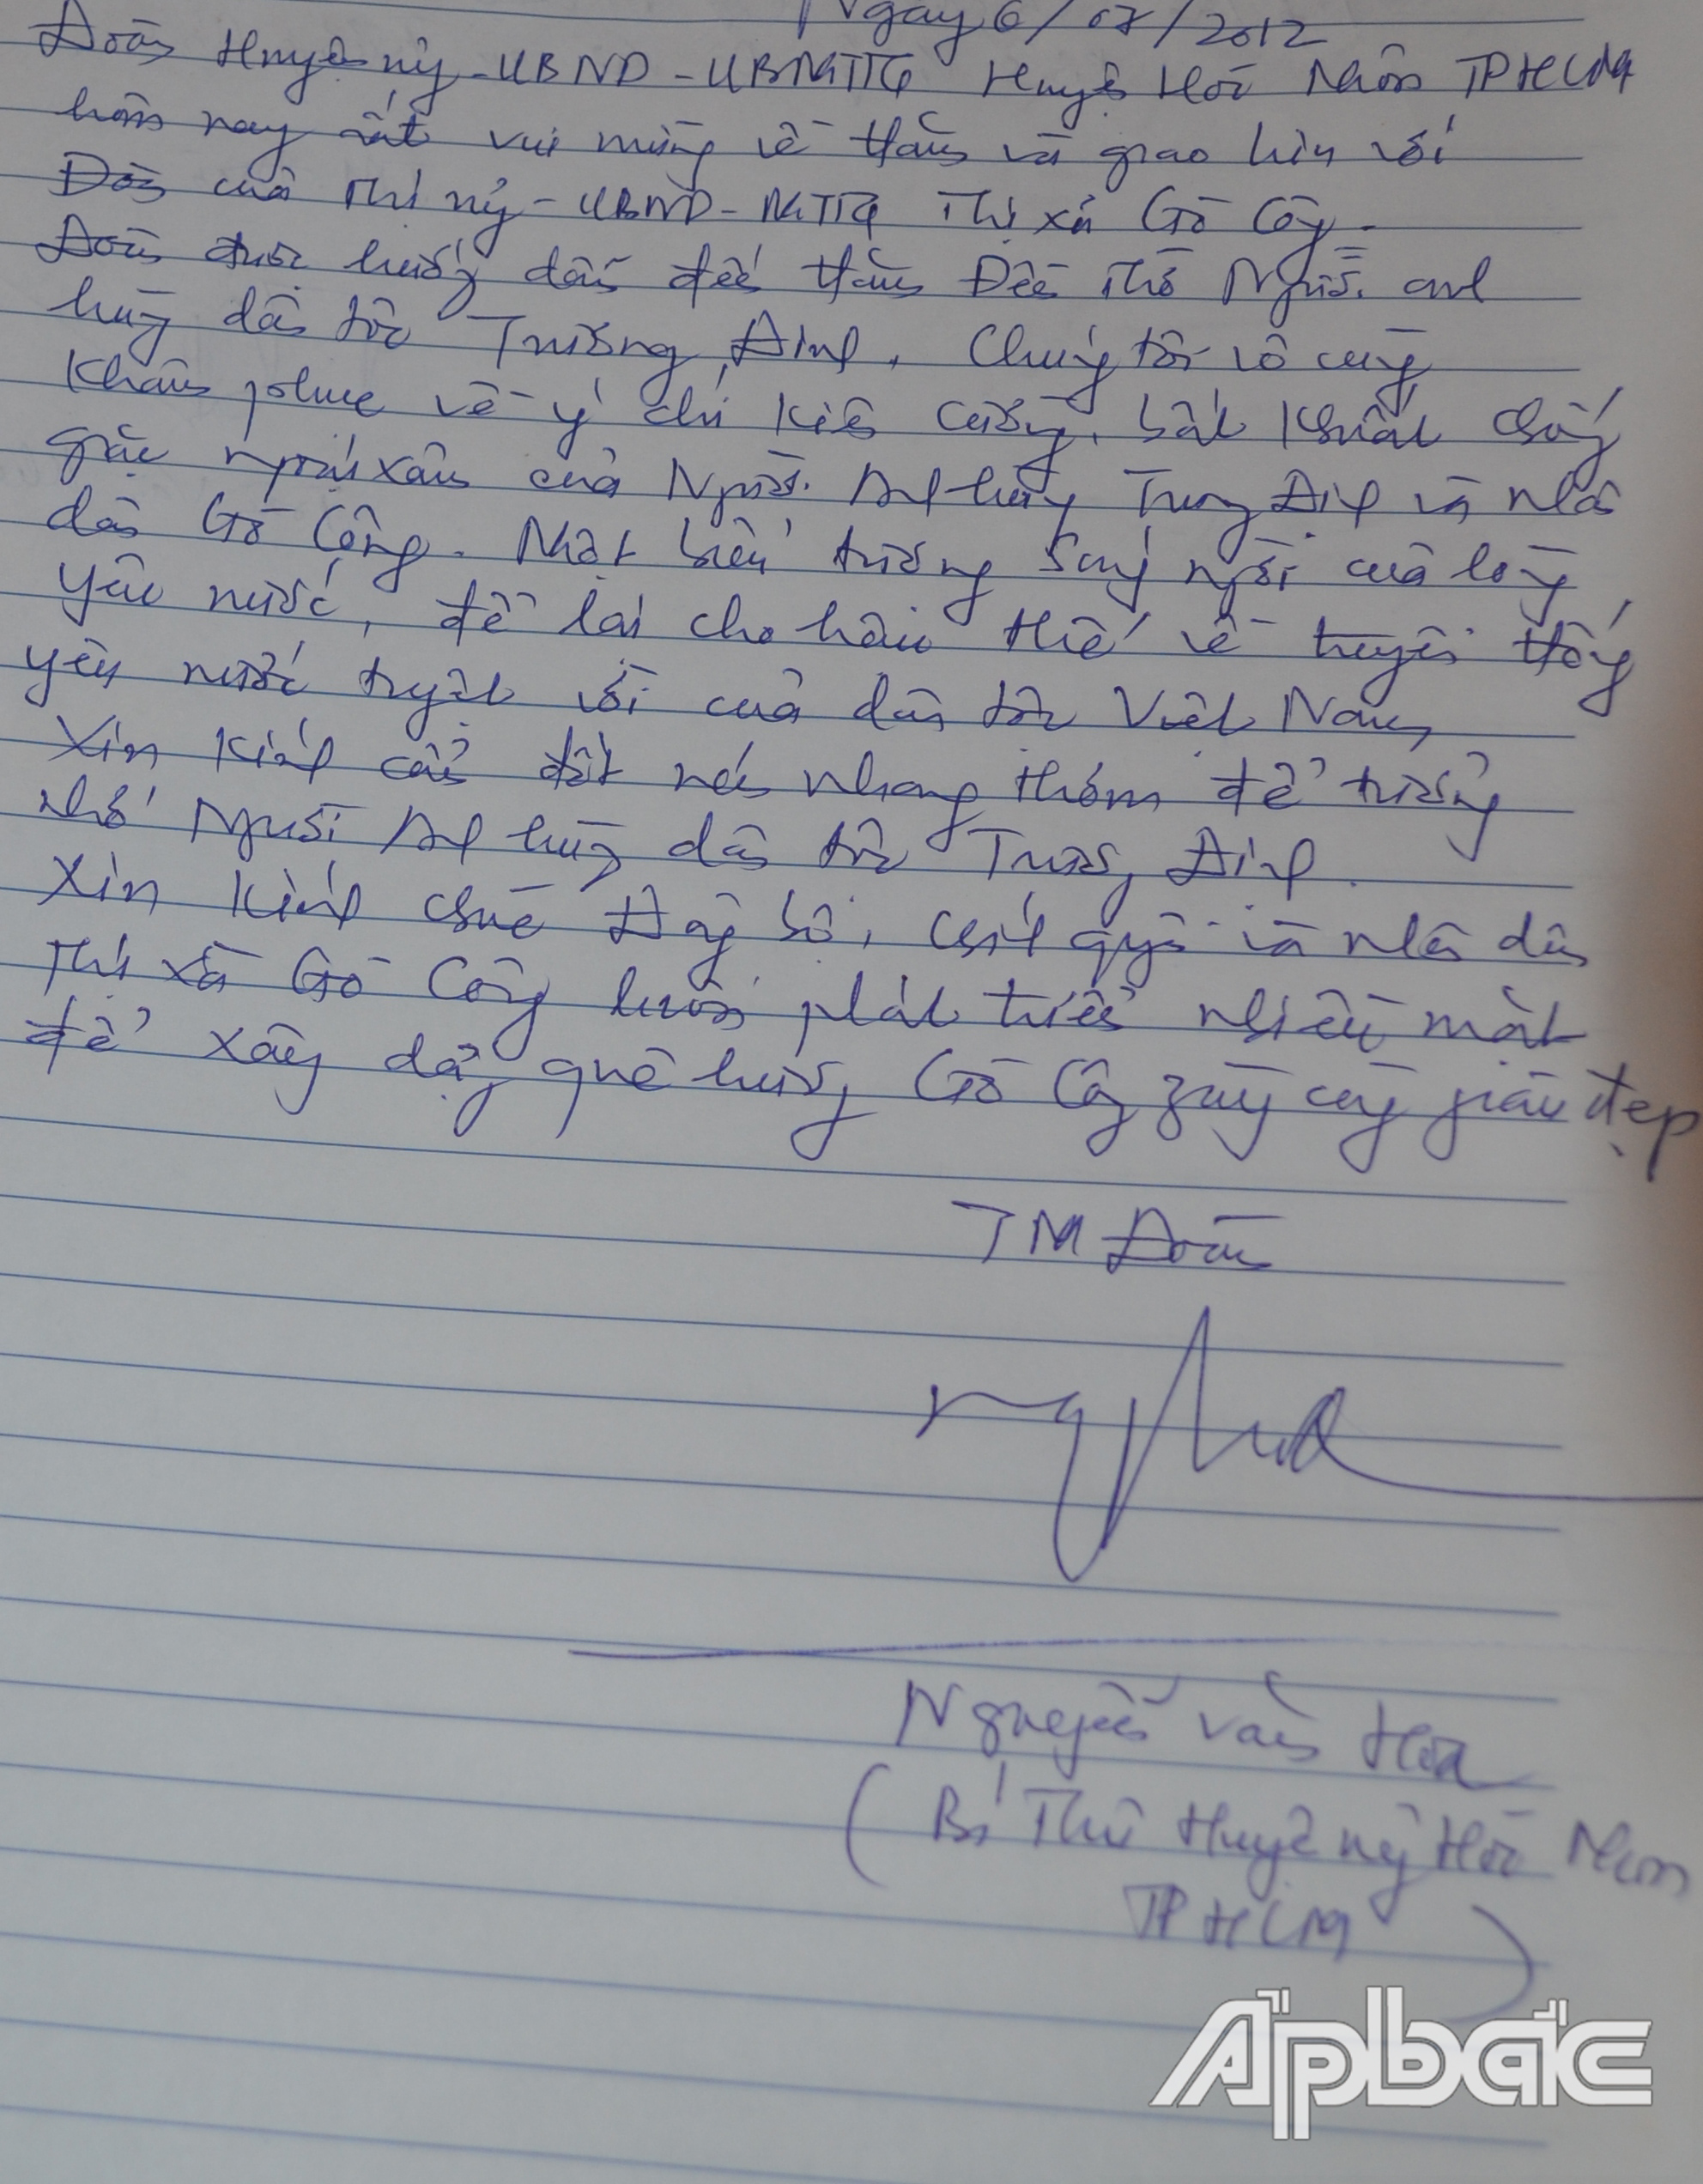 Ngày 6/07/2012
Đoàn Huyện ủy - UBND - UBMTTQ Huyện Hóc Môn TPHCM
hôm nay rất vui mừng về thăm và giao lưu với
Đoàn của Thị ủy - UBND - MTTQ Thị xã Gò Công.
Đoàn được hướng dẫn đến thăm Đền Thờ Người anh
hùng dân tộc Trương Định, Chúng tôi vô cùng
Khâm phục về ý chí kiên cường, bất khuất chống
giặc ngoại xâm của Người Anh hùng Trương Định và nhân
dân Gò Công. Một biểu tượng sáng ngời của lòng
yêu nước, để lại cho hậu thế về truyền thống
yêu nước tuyệt vời của dân tộc Việt Nam,
Xin kính cẩn đốt nén nhang thơm để tưởng
nhớ Người Anh hùng dân tộc Trương Định.
Xin kính chúc Đảng bộ, chính quyền và nhân dân
Thị xã Gò Công luôn phát triển nhiều mặt
để xây dựng quê hương Gò Công ngày càng giàu đẹp
TM Đoàn
Nguyễn Văn Hoa
(Bí Thư Huyện ủy Hóc Môn
TPHCM)
Ấpbắc